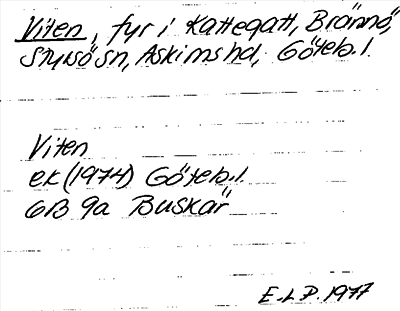 Viten, fyr i Kattegatt, Brännö,
Styrsö sn, Askims hd, Göteb. l.
Viten
ek (1974) Göteb. l.
6B 9a Buskär
E.L.P. 1977